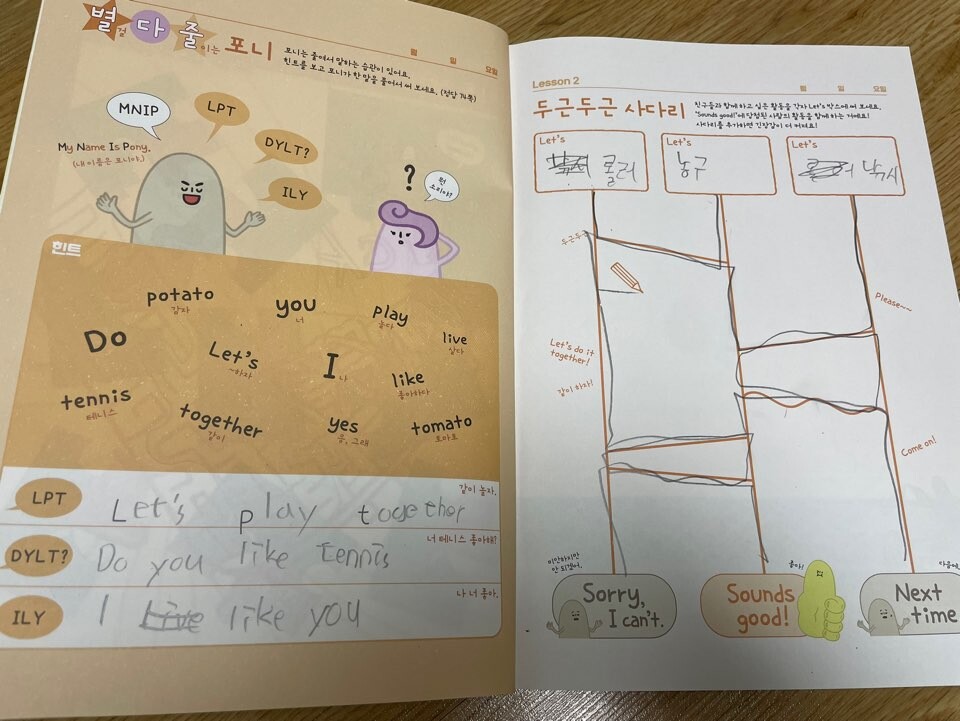 별걸 다 줄이는 포니
월 일 요일
포니는 줄여서 말하는 습관이 있어요.
힌트를 보고 포니가 한 말을 풀어서 써 보세요. (정답 74쪽)
MNIP
LPT
DYLT?
ILY
My Name Is Pony.
(내 이름은 포니야.)
?
뭔
소리야?
힌트
potato
감자
you
너
play
놀다
Do
Let's
~하자
I
나
live
살다
like
좋아하다
tennis
테니스
together
같이
yes
응, 그래
tomato
토마토
LPT
같이 놀자.
Let's play together
DYLT?
너 테니스 좋아해?
Do you like tennis
ILY
나 너 좋아.
I like you
Lesson 2
월 일 요일
두근두근 사다리
친구들과 함께 하고 싶은 활동을 각자 Let's 박스에 써 보세요.
"Sounds good!"에 당첨된 사람의 활동을 함께 하는 거예요!
사다리를 추가하면 긴장감이 더 커져요!
Let's
Let's
농구
Let's
낚시
두근두
Please~~
Let's do it
together!
같이 하자!
Come on!
미안하지만
안 되겠어.
Sorry,
I can't.
좋아!
Sounds
good!
다음에.
Next
time